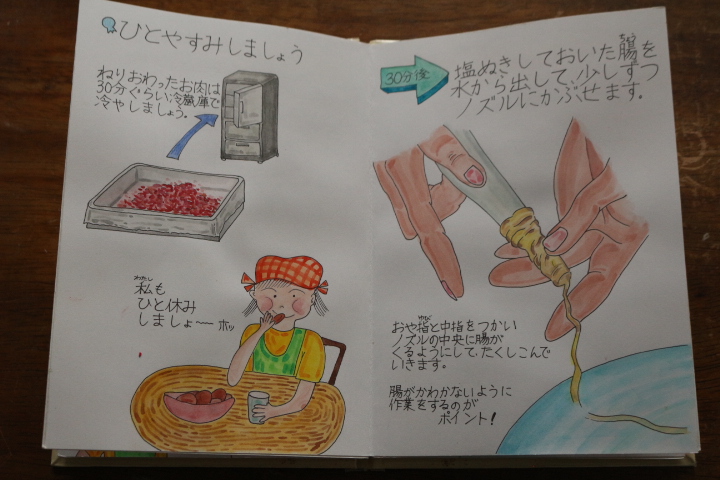 ひとやすみしましょう
ねりおわったお肉は
30分ぐらい冷蔵庫で
冷やしましょう。
わたし
私も
ひと休み
しましょ〜 ホッ
30分後
ちょう
塩ぬきしておいた腸を
水から出して、少しずつ
ノズルにかぶせます。
ゆび
おや指と中指をつかい
ノズルの中央に腸が
くるようにして、たくしこんで
いきます。
腸がかわかないように
作業をするのが
ポイント!